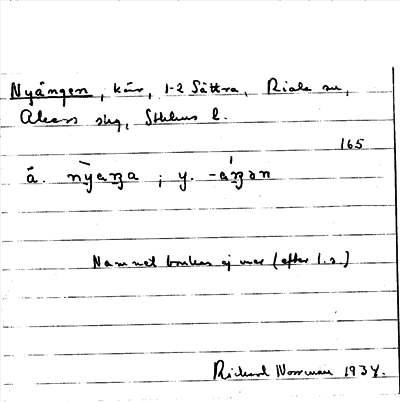 Nyängen, kärr, 1-2 Sättra, Riala sn,
Åkers skg, Sthlms l.
165
ä. nỳeŋa ; y. -éŋən
Namnet brukas ej mer (efter l.s.)
Rickard Norrman 1934.